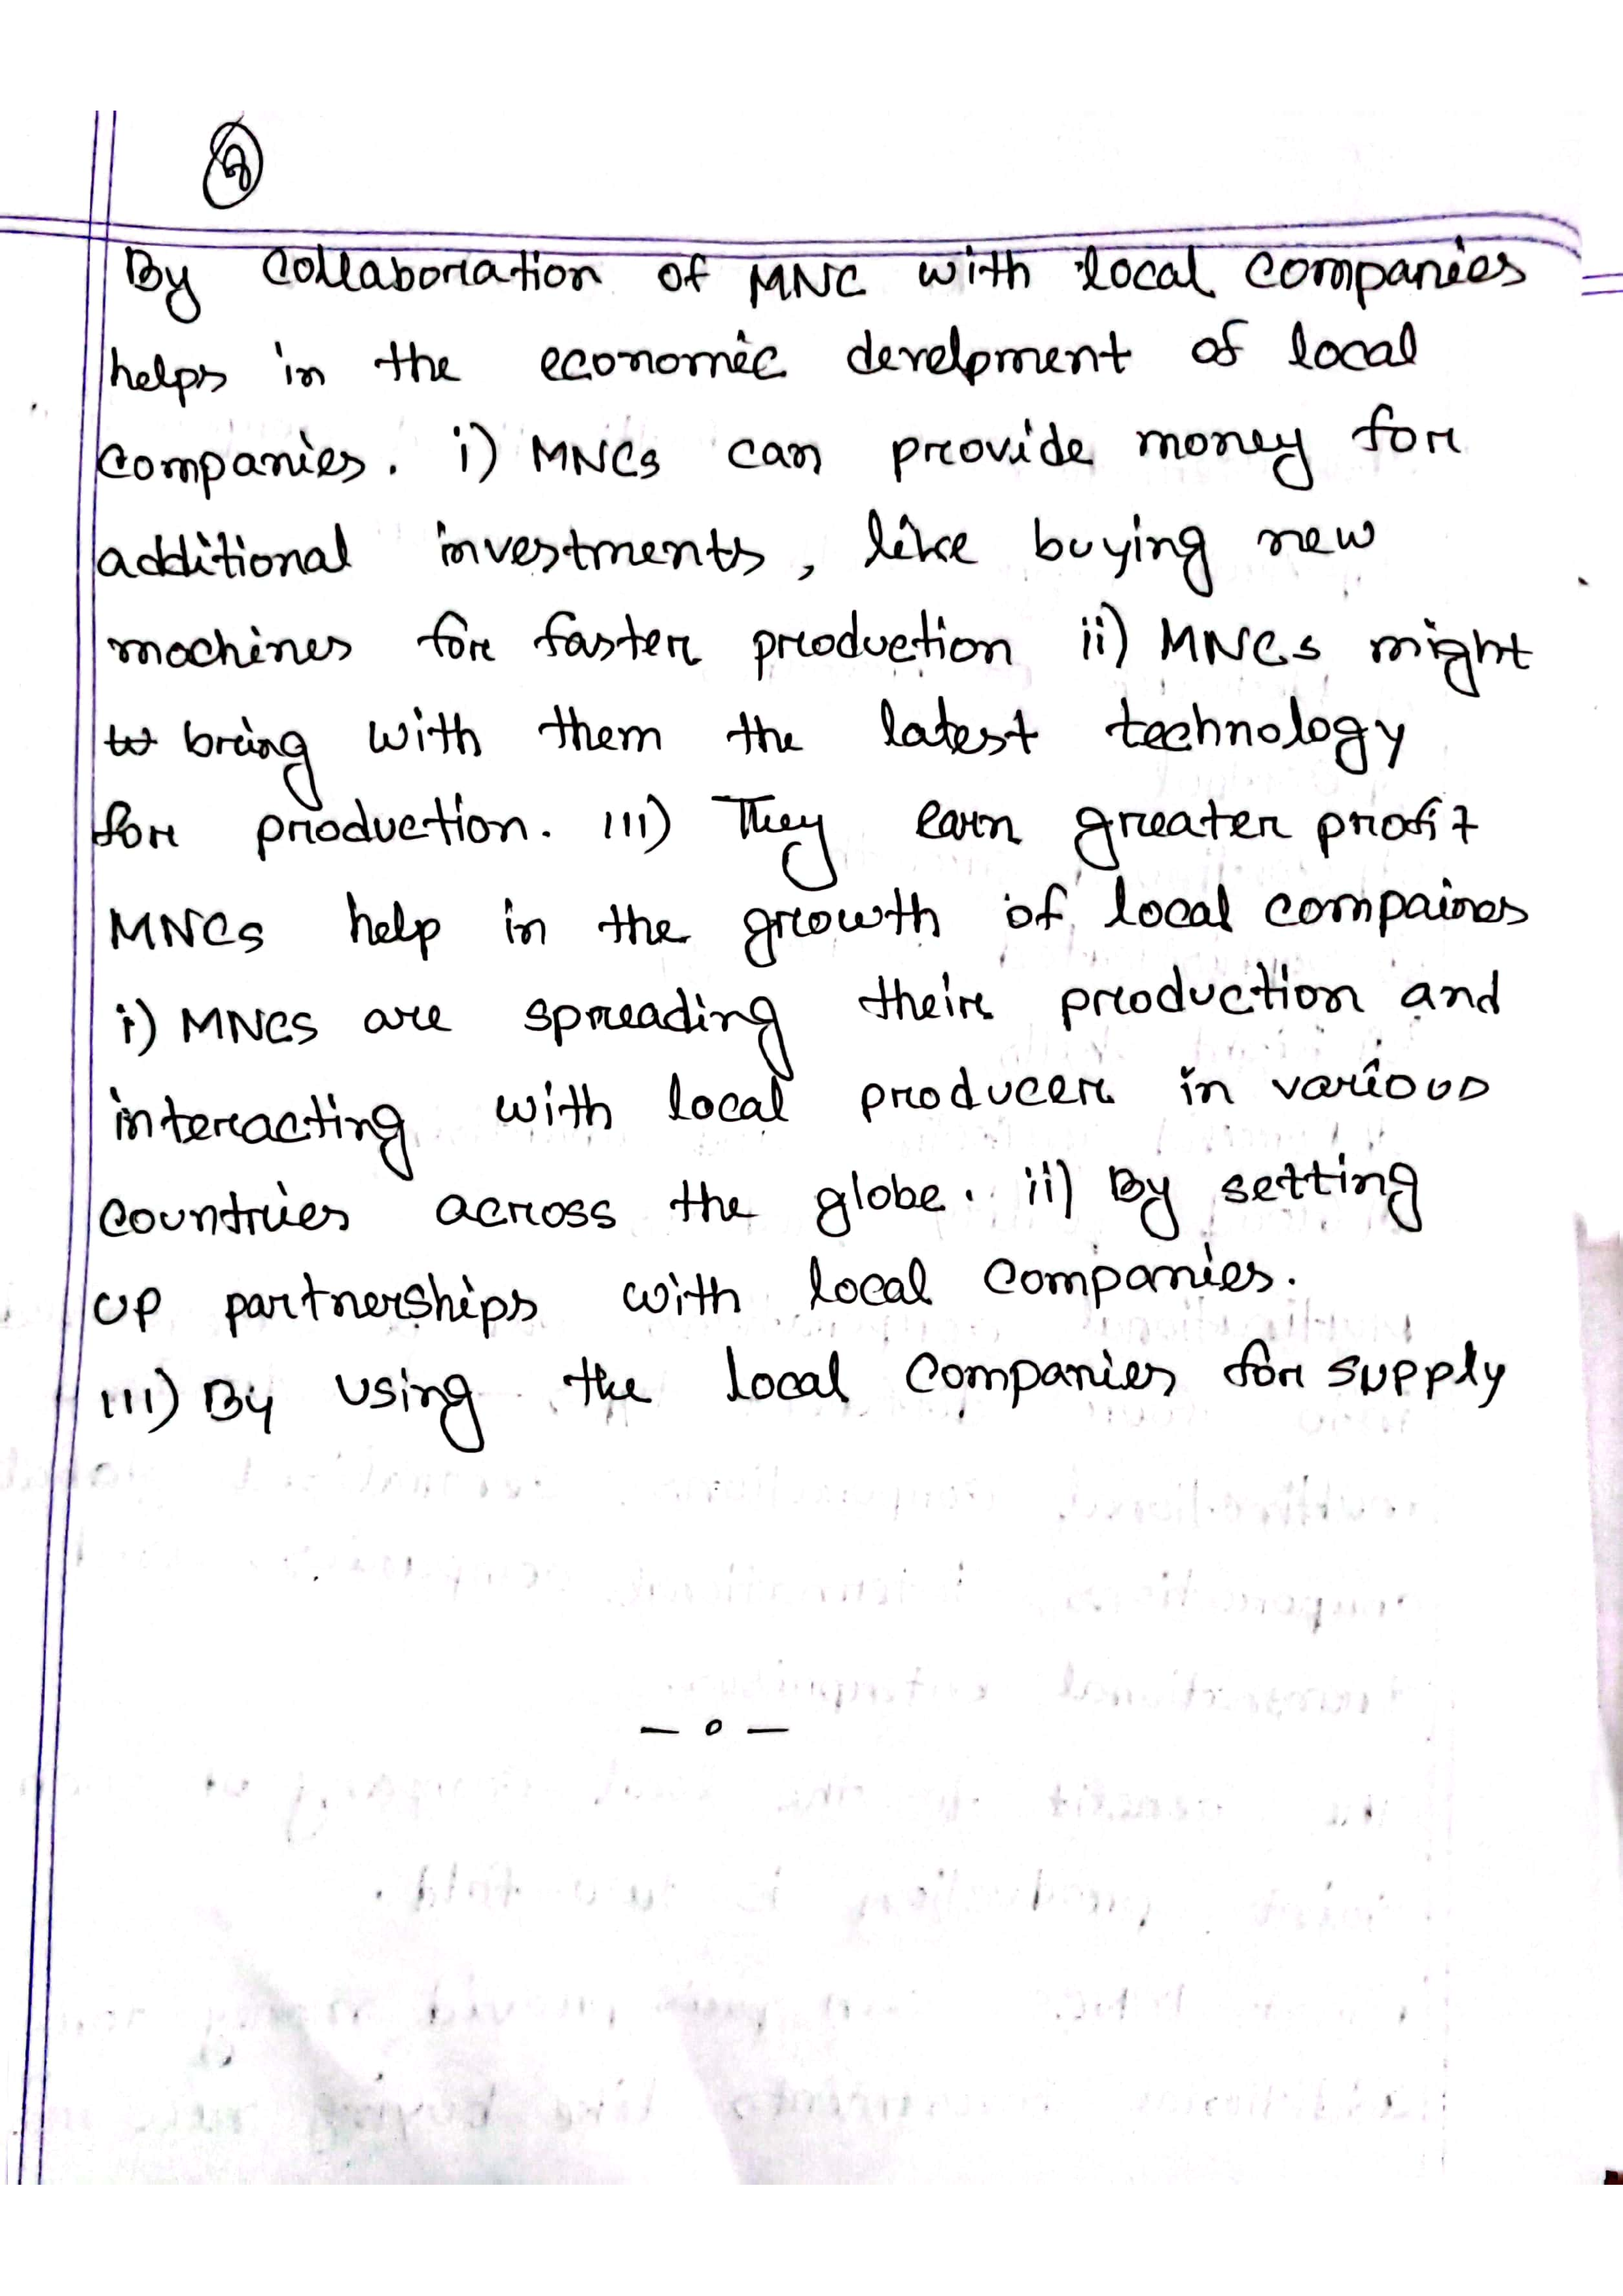 By Collaboration of MNC with local companies
helps in the economic develpment of local
companies. i) MNCs can provide money for
additional investments, like buying new
machines for faster production ii) MNCs might
bring with them the latest technology
for production. iii) They earn greater profit
MNCs help in the growth of local compaines
i) MNCs are spreading their production and
interacting with local producer in various
countries across the globe. ii) By setting
up partnerships with local companies.
iii) By using the local companies for supply
— o —